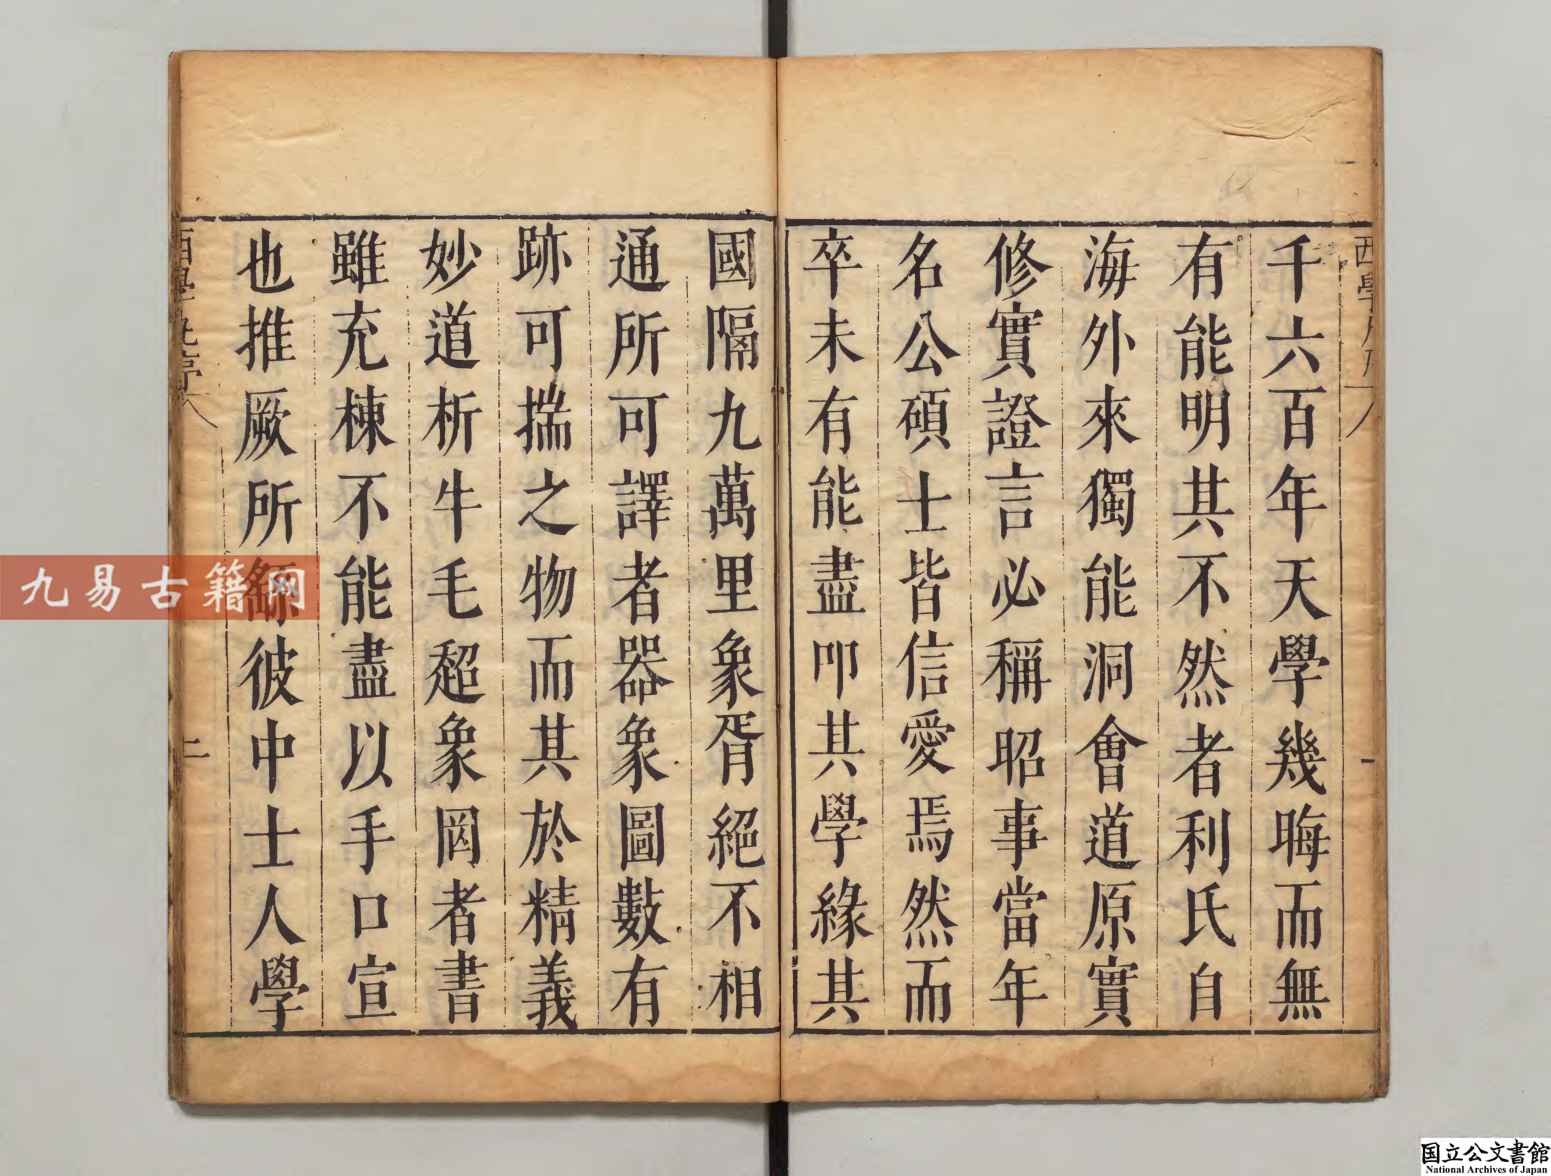 千六百年天學幾晦而無
有能明其不然者利氏自
海外來獨能洞會道原實
修實證言必稱昭事當年
名公碩士皆信愛焉然而
卒未有能盡叩其學緣其
國隔九萬里象胥絕不相
通所可譯者器象圖數有
跡可揣之物而其於精義
妙道析牛毛超象罔者書
雖充棟不能盡以手口宣
也推厥所繇彼中士人學
一
二
九易古籍网
国立公文書館
National Archives of Japan